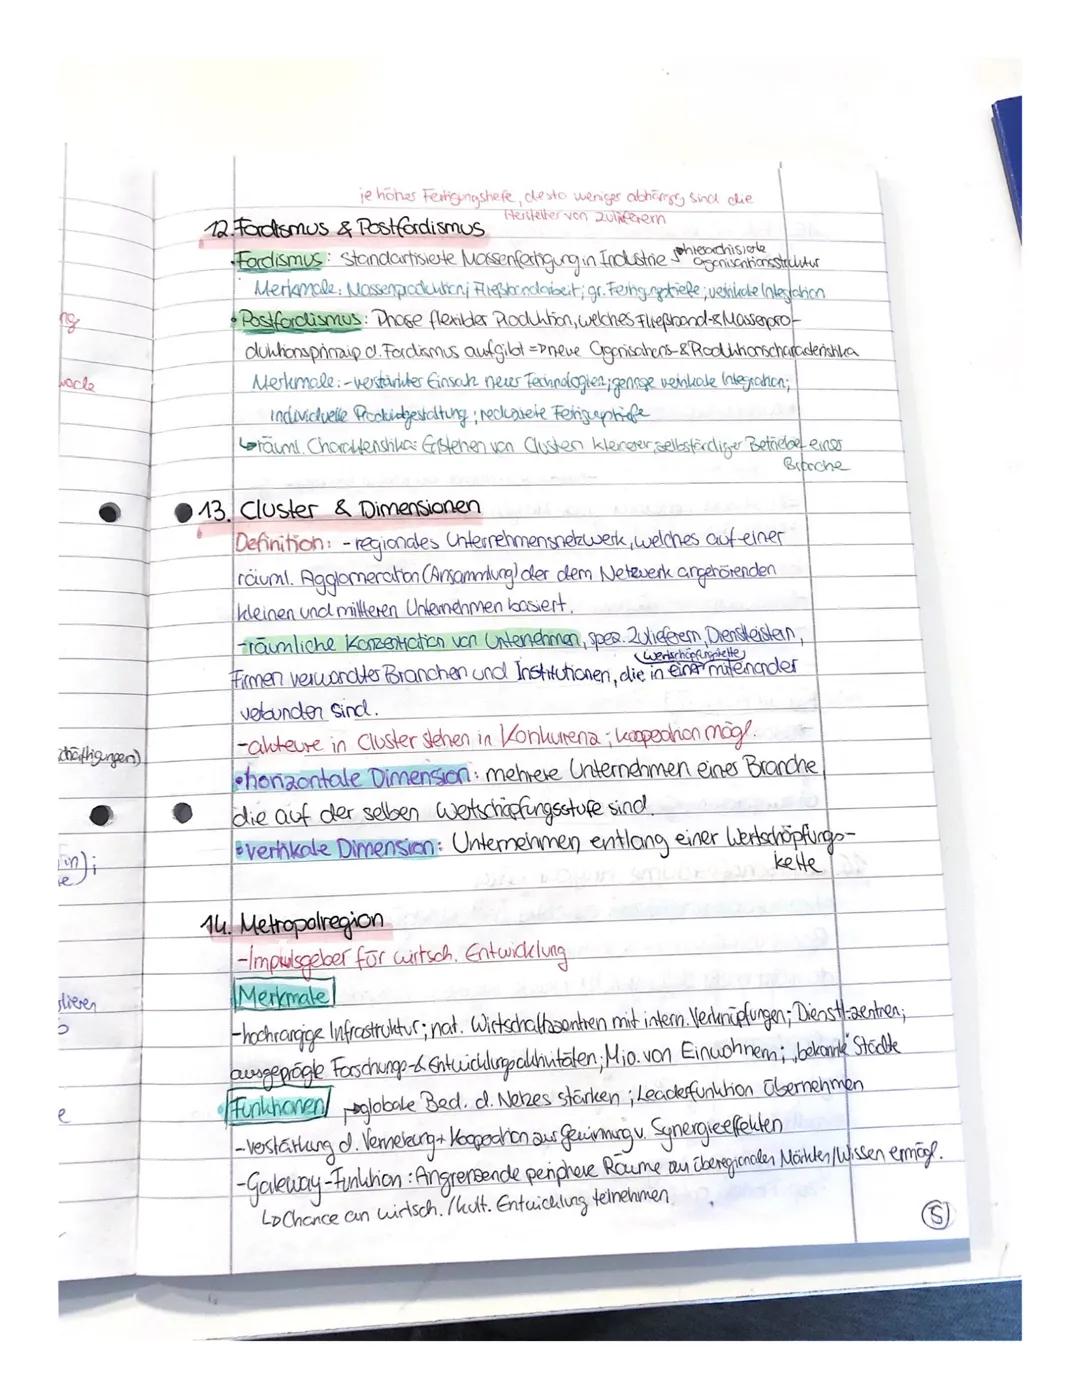 je höher Fertigungstiefe, desto weniger abhängig sind die
Hersteller von Zulieferern
12. Fordismus & Postfordismus
Fordismus: Standartisierte Massenfertigung in Industrie hierarchisierte
Organisationsstruktur
Merkmale: Massenproduktion; Fließbandarbeit; gr. Fertigungstiefe; vertikale Integration
• Postfordismus: Phase flexibler Produktion, welches Fließband- & Massenpro-
duktionsprinzip d. Fordismus aufgibt => neue Organisations- & Produktionscharakteristika
Merkmale: - verstärkter Einsatz neuer Technologien; geringe vertikale Integration;
individuelle Produktgestaltung; reduzierte Fertigungstiefe
↳ räuml. Charakteristika: Entstehen von Clustern kleinerer, selbständiger Betriebe einer
Branche
13. Cluster & Dimensionen
Definition: - regionales Unternehmensnetzwerk, welches auf einer
räuml. Agglomeration (Ansammlung) der dem Netzwerk angehörenden
kleinen und mittleren Unternehmen basiert.
- räumliche Konzentration von Unternehmen, spez. Zulieferern, Dienstleistern,
Wertschöpfungskette
Firmen verwandter Branchen und Institutionen, die in einer miteinander
verbunden sind.
- akteure in Cluster stehen in Konkurrenz; kooperation mögl.
• horizontale Dimension: mehrere Unternehmen eines Branche
die auf der selben Wertschöpfungsstufe sind.
• vertikale Dimension: Unternehmen entlang einer Wertschöpfungs-
kette
14. Metropolregion
- Impulsgeber für wirtsch. Entwicklung
Merkmale
- hochrangige Infrastruktur; nat. Wirtschaftszentren mit intern. Verknüpfungen; Dienstl.zentren;
ausgeprägte Forschungs- & Entwicklungsaktivitäten; Mio. von Einwohnern; „bekannte" Städte
• Funktionen globale Bed. d. Netzes stärken; Leaderfunktion übernehmen
- verstärkung d. Vernetzung + Kooperation zur Gewinnung v. Synergieeffekten
- Gateway-Funktion: Angrenzende periphere Räume an überregionalen Märkten/Wissen ermögl.
↳ Chance an wirtsch./kult. Entwicklung teilnehmen
5